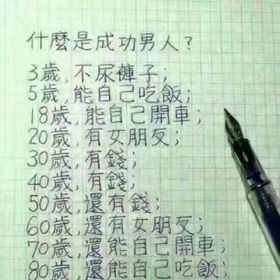 什麼是成功男人?
3歲,不尿褲子;
5歲,能自己吃飯;
18歲,能自己開車;
20歲,有女朋友;
30歲,有錢;
40歲,有錢;
50歲,還有錢;
60歲,還有女朋友;
70歲,還能自己開車;
80歲,還能自己吃飯;